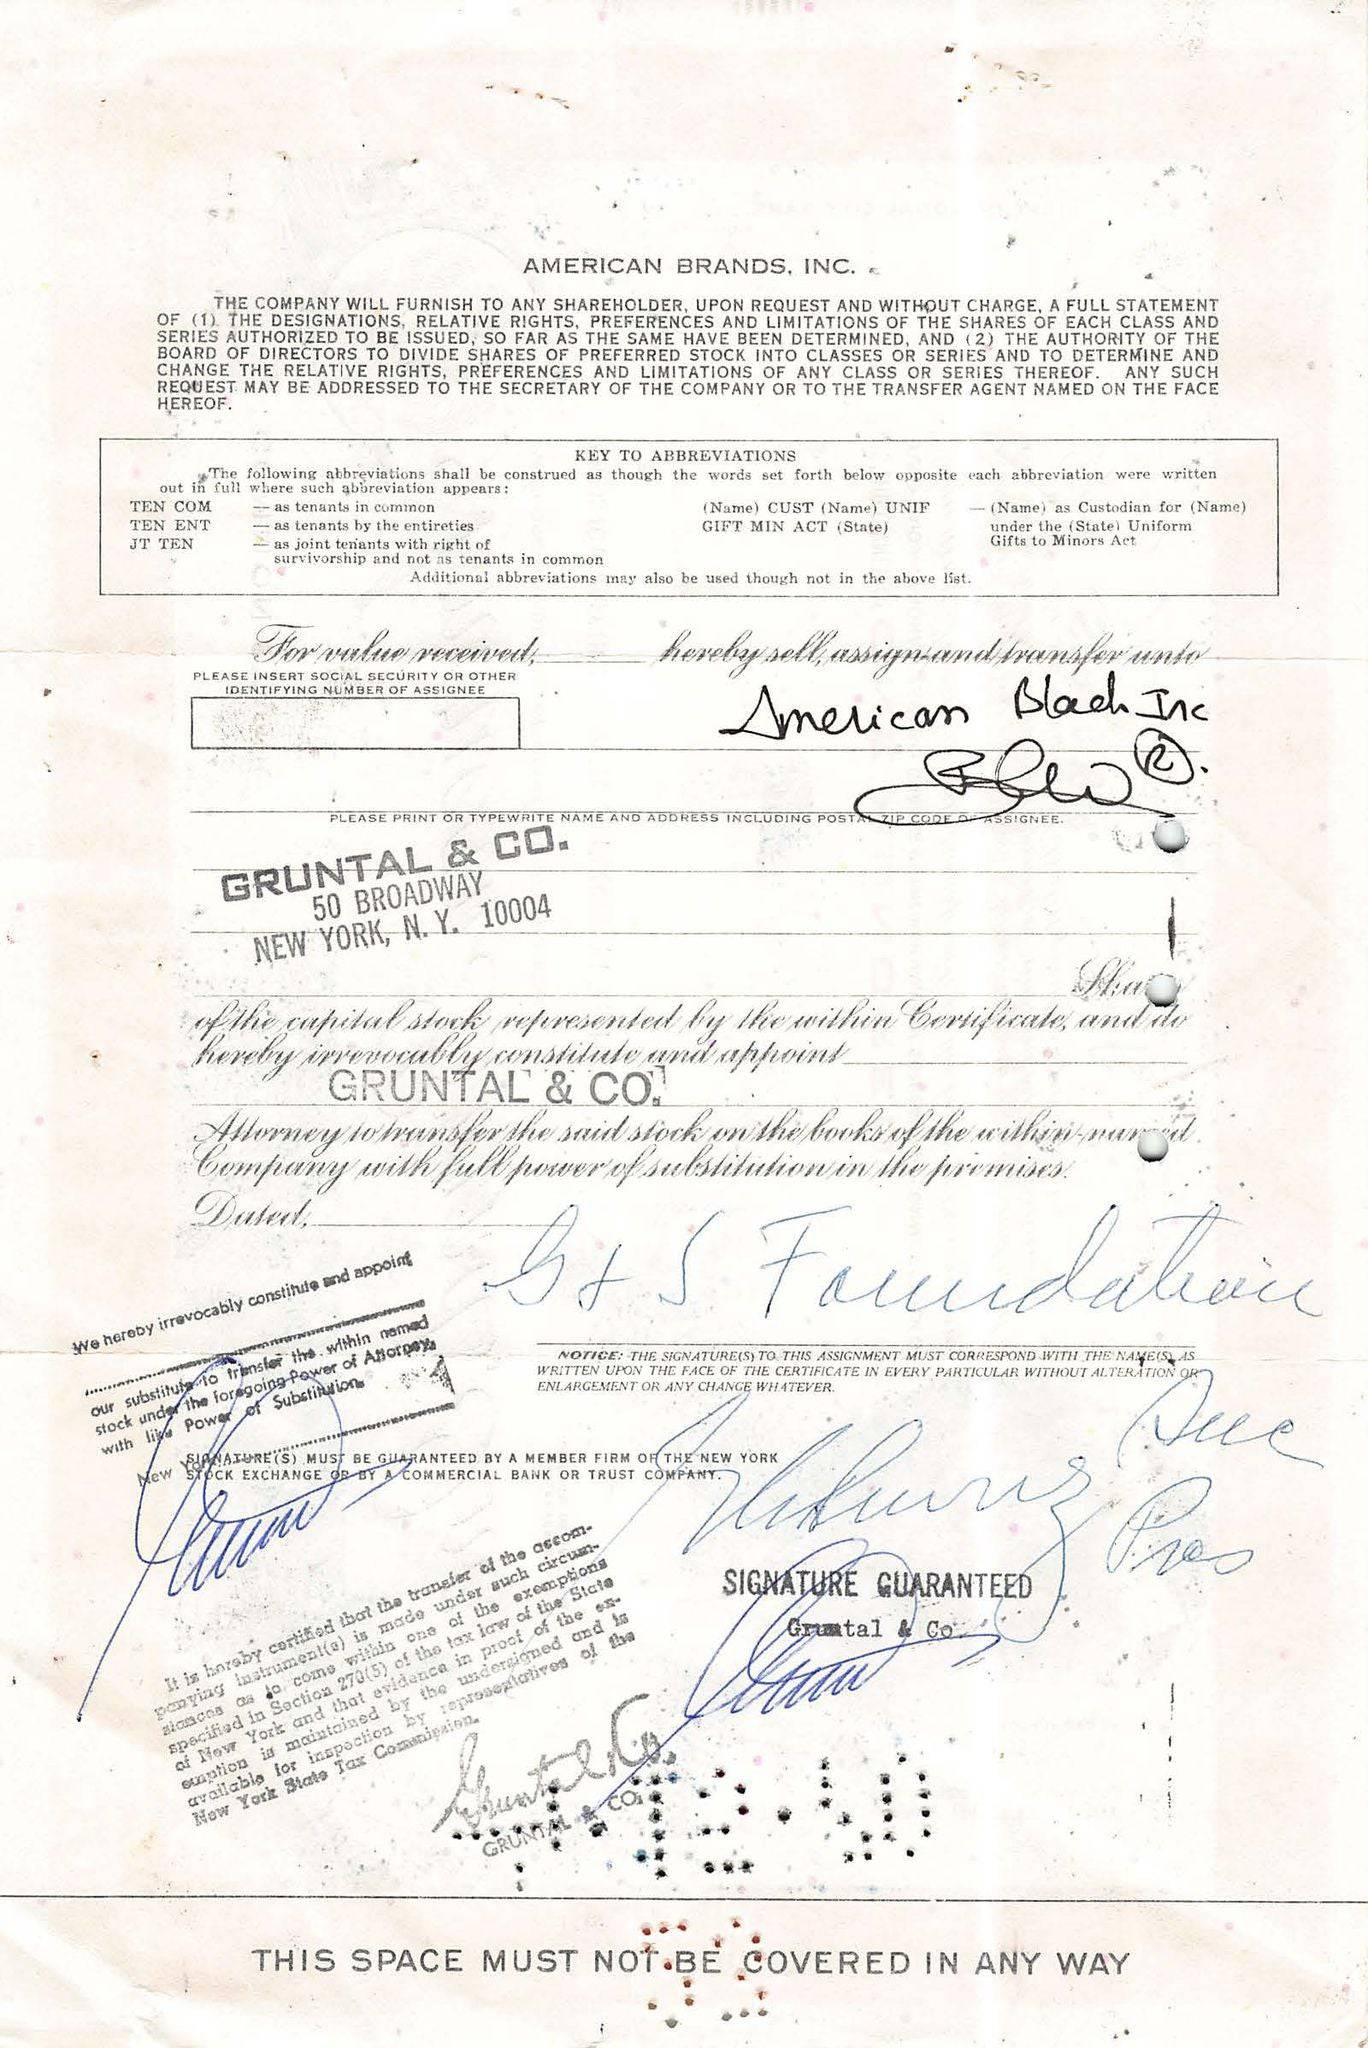 AMERICAN BRANDS, INC.
THE COMPANY WILL FURNISH TO ANY SHAREHOLDER, UPON REQUEST AND WITHOUT CHARGE, A FULL STATEMENT
OF (1) THE DESIGNATIONS, RELATIVE RIGHTS, PREFERENCES AND LIMITATIONS OF THE SHARES OF EACH CLASS AND
SERIES AUTHORIZED TO BE ISSUED, SO FAR AS THE SAME HAVE BEEN DETERMINED, AND (2) THE AUTHORITY OF THE
BOARD OF DIRECTORS TO DIVIDE SHARES OF PREFERRED STOCK INTO CLASSES OR SERIES AND TO DETERMINE AND
CHANGE THE RELATIVE RIGHTS, PREFERENCES AND LIMITATIONS OF ANY CLASS OR SERIES THEREOF. ANY SUCH
REQUEST MAY BE ADDRESSED TO THE SECRETARY OF THE COMPANY OR TO THE TRANSFER AGENT NAMED ON THE FACE
HEREOF.
KEY TO ABBREVIATIONS
The following abbreviations shall be construed as though the words set forth below opposite each abbreviation were written
out in full where such abbreviation appears:
TEN COM — as tenants in common
TEN ENT — as tenants by the entireties
JT TEN — as joint tenants with right of
survivorship and not as tenants in common
(Name) CUST (Name) UNIF — (Name) as Custodian for (Name)
GIFT MIN ACT (State) under the (State) Uniform
Gifts to Minors Act
Additional abbreviations may also be used though not in the above list.
For value received, hereby sell, assign and transfer unto
PLEASE INSERT SOCIAL SECURITY OR OTHER
IDENTIFYING NUMBER OF ASSIGNEE
American Black Inc
R
PLEASE PRINT OR TYPEWRITE NAME AND ADDRESS INCLUDING POSTAL ZIP CODE OF ASSIGNEE.
GRUNTAL & CO.
50 BROADWAY
NEW YORK, N. Y. 10004
of the capital stock represented by the within Certificate, and do
hereby irrevocably constitute and appoint
GRUNTAL & CO.
Attorney to transfer the said stock on the books of the within-named
Company with full power of substitution in the premises.
Dated,
G & S Foundation
We hereby irrevocably constitute and appoint
our substitute to transfer the within named
stock under the foregoing Power of Attorney,
with like Power of Substitution.
New York
NOTICE: THE SIGNATURE(S) TO THIS ASSIGNMENT MUST CORRESPOND WITH THE NAME(S) AS
WRITTEN UPON THE FACE OF THE CERTIFICATE IN EVERY PARTICULAR WITHOUT ALTERATION OR
ENLARGEMENT OR ANY CHANGE WHATEVER.
SIGNATURE(S) MUST BE GUARANTEED BY A MEMBER FIRM OF THE NEW YORK
STOCK EXCHANGE OR BY A COMMERCIAL BANK OR TRUST COMPANY.
Pres
SIGNATURE GUARANTEED
Gruntal & Co.
It is hereby certified that the transfer of the accom-
panying instrument(s) is made under such circum-
stances as to come within one of the exemptions
specified in Section 270(5) of the tax law of the State
of New York and that evidence in proof of the ex-
emption is maintained by the undersigned and is
available for inspection by representatives of the
New York State Tax Commission.
Gruntal & Co.
GRUNTAL & CO.
THIS SPACE MUST NOT BE COVERED IN ANY WAY